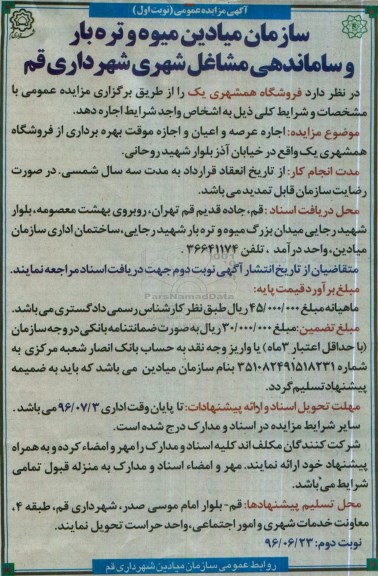 آگهی مزایده عمومی (نوبت اول)
سازمان میادین میوه و تره بار
و ساماندهی مشاغل شهری شهرداری قم
در نظر دارد فروشگاه همشهری یک را از طریق برگزاری مزایده عمومی با
مشخصات و شرایط کلی ذیل به اشخاص واجد شرایط اجاره دهد.
موضوع مزایده: اجاره عرصه و اعیان و اجازه موقت بهره برداری از فروشگاه
همشهری یک واقع در خیابان آذر بلوار شهید روحانی.
مدت انجام کار: از تاریخ انعقاد قرارداد به مدت سه سال شمسی. در صورت
رضایت سازمان قابل تمدید می باشد.
محل دریافت اسناد: قم، جاده قدیم قم تهران، روبروی بهشت معصومه، بلوار
شهید رجایی میدان بزرگ میوه و تره بار شهید رجایی، ساختمان اداری سازمان
میادین، واحد درآمد ، تلفن ۳۶۶۴۱۱۷۴ .
متقاضیان از تاریخ انتشار آگهی نوبت دوم جهت دریافت اسناد مراجعه نمایند.
مبلغ برآورد قیمت پایه:
ماهیانه مبلغ ۴۵/۰۰۰/۰۰۰ ریال طبق نظر کارشناس رسمی دادگستری می باشد.
مبلغ تضمین: مبلغ ۳۰/۰۰۰/۰۰۰ ریال به صورت ضمانتنامه بانکی در وجه سازمان
(با حداقل اعتبار ۳ ماه) یا واریز وجه نقد به حساب بانک انصار شعبه مرکزی به
شماره ۳۵۱۰۸۲۴۹۱۵۱۸۲۳۱ بنام سازمان میادین می باشد که باید به ضمیمه
پیشنهاد تسلیم گردد.
مهلت تحویل اسناد و ارائه پیشنهادات: تا پایان وقت اداری ۹۶/۰۷/۳ می باشد.
سایر شرایط مزایده در اسناد و مدارک درج شده است.
شرکت کنندگان مکلف اند کلیه اسناد و مدارک را مهر و امضاء کرده و به همراه
پیشنهاد خود ارائه نمایند. مهر و امضاء اسناد و مدارک به منزله قبول تمامی
شرایط می باشد.
محل تسلیم پیشنهادها: قم- بلوار امام موسی صدر، شهرداری قم، طبقه ۴،
معاونت خدمات شهری و امور اجتماعی، واحد حراست تحویل نمایند.
نوبت دوم: ۹۶/۰۶/۲۳
روابط عمومی سازمان میادین شهرداری قم